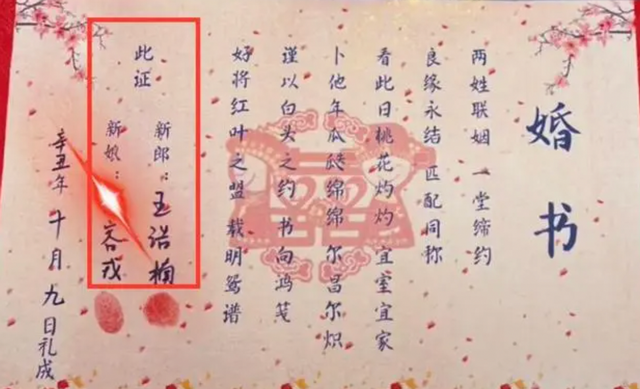 婚书
两姓联姻 一堂缔约
良缘永结 匹配同称
看此日桃花灼灼 宜室宜家
卜他年瓜瓞绵绵 尔昌尔炽
谨以白头之约 书向鸿笺
好将红叶之盟 载明鸳谱
此证
新郎：王楠
新娘：戎
辛丑年 十月九日礼成